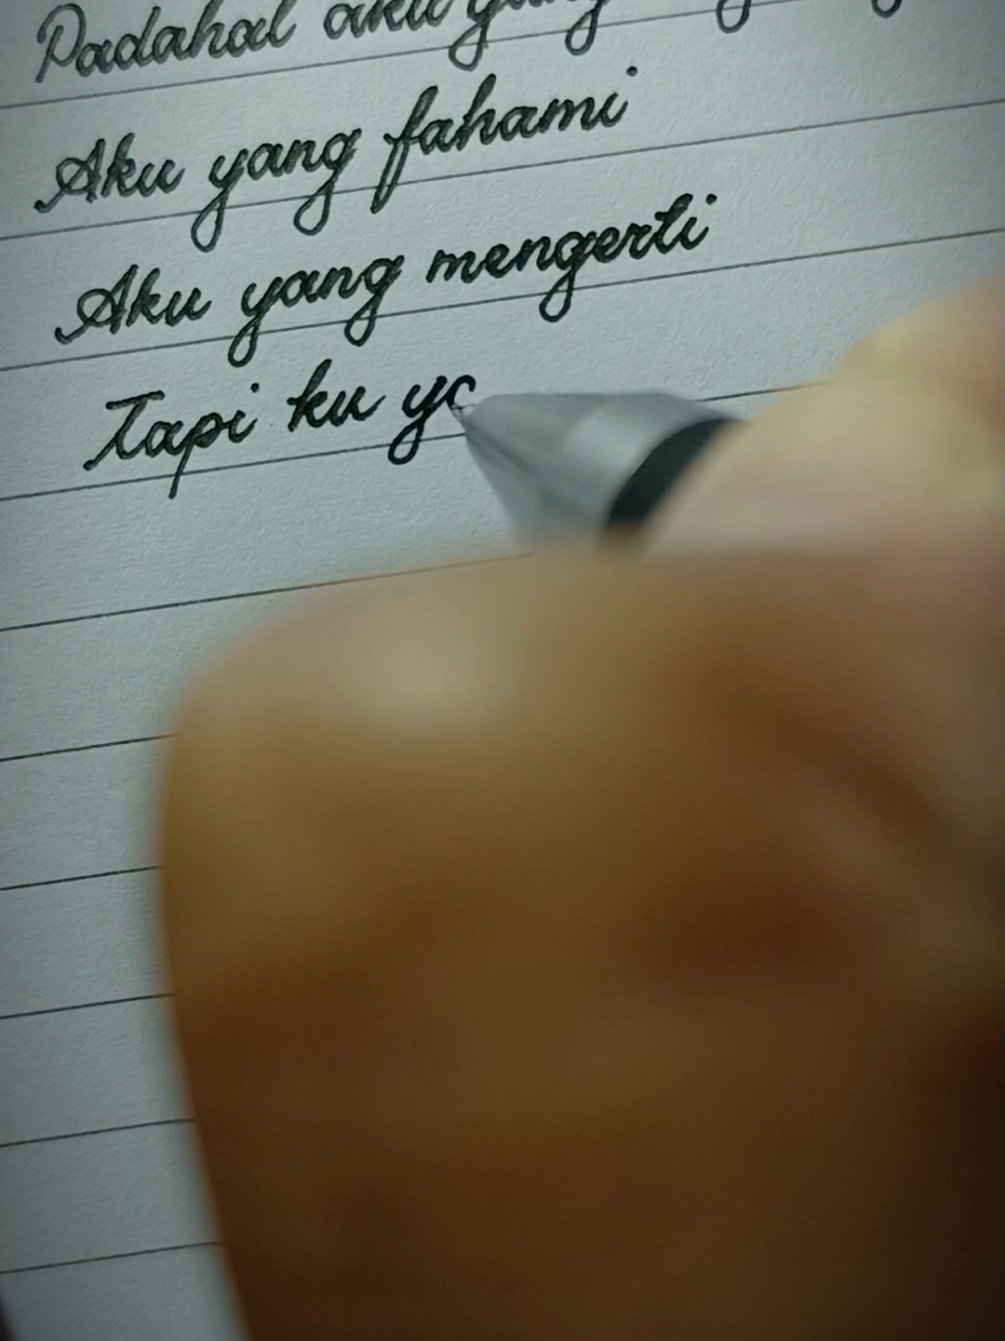 Padahal aku yang
Aku yang fahami
Aku yang mengerti
Tapi ku ya